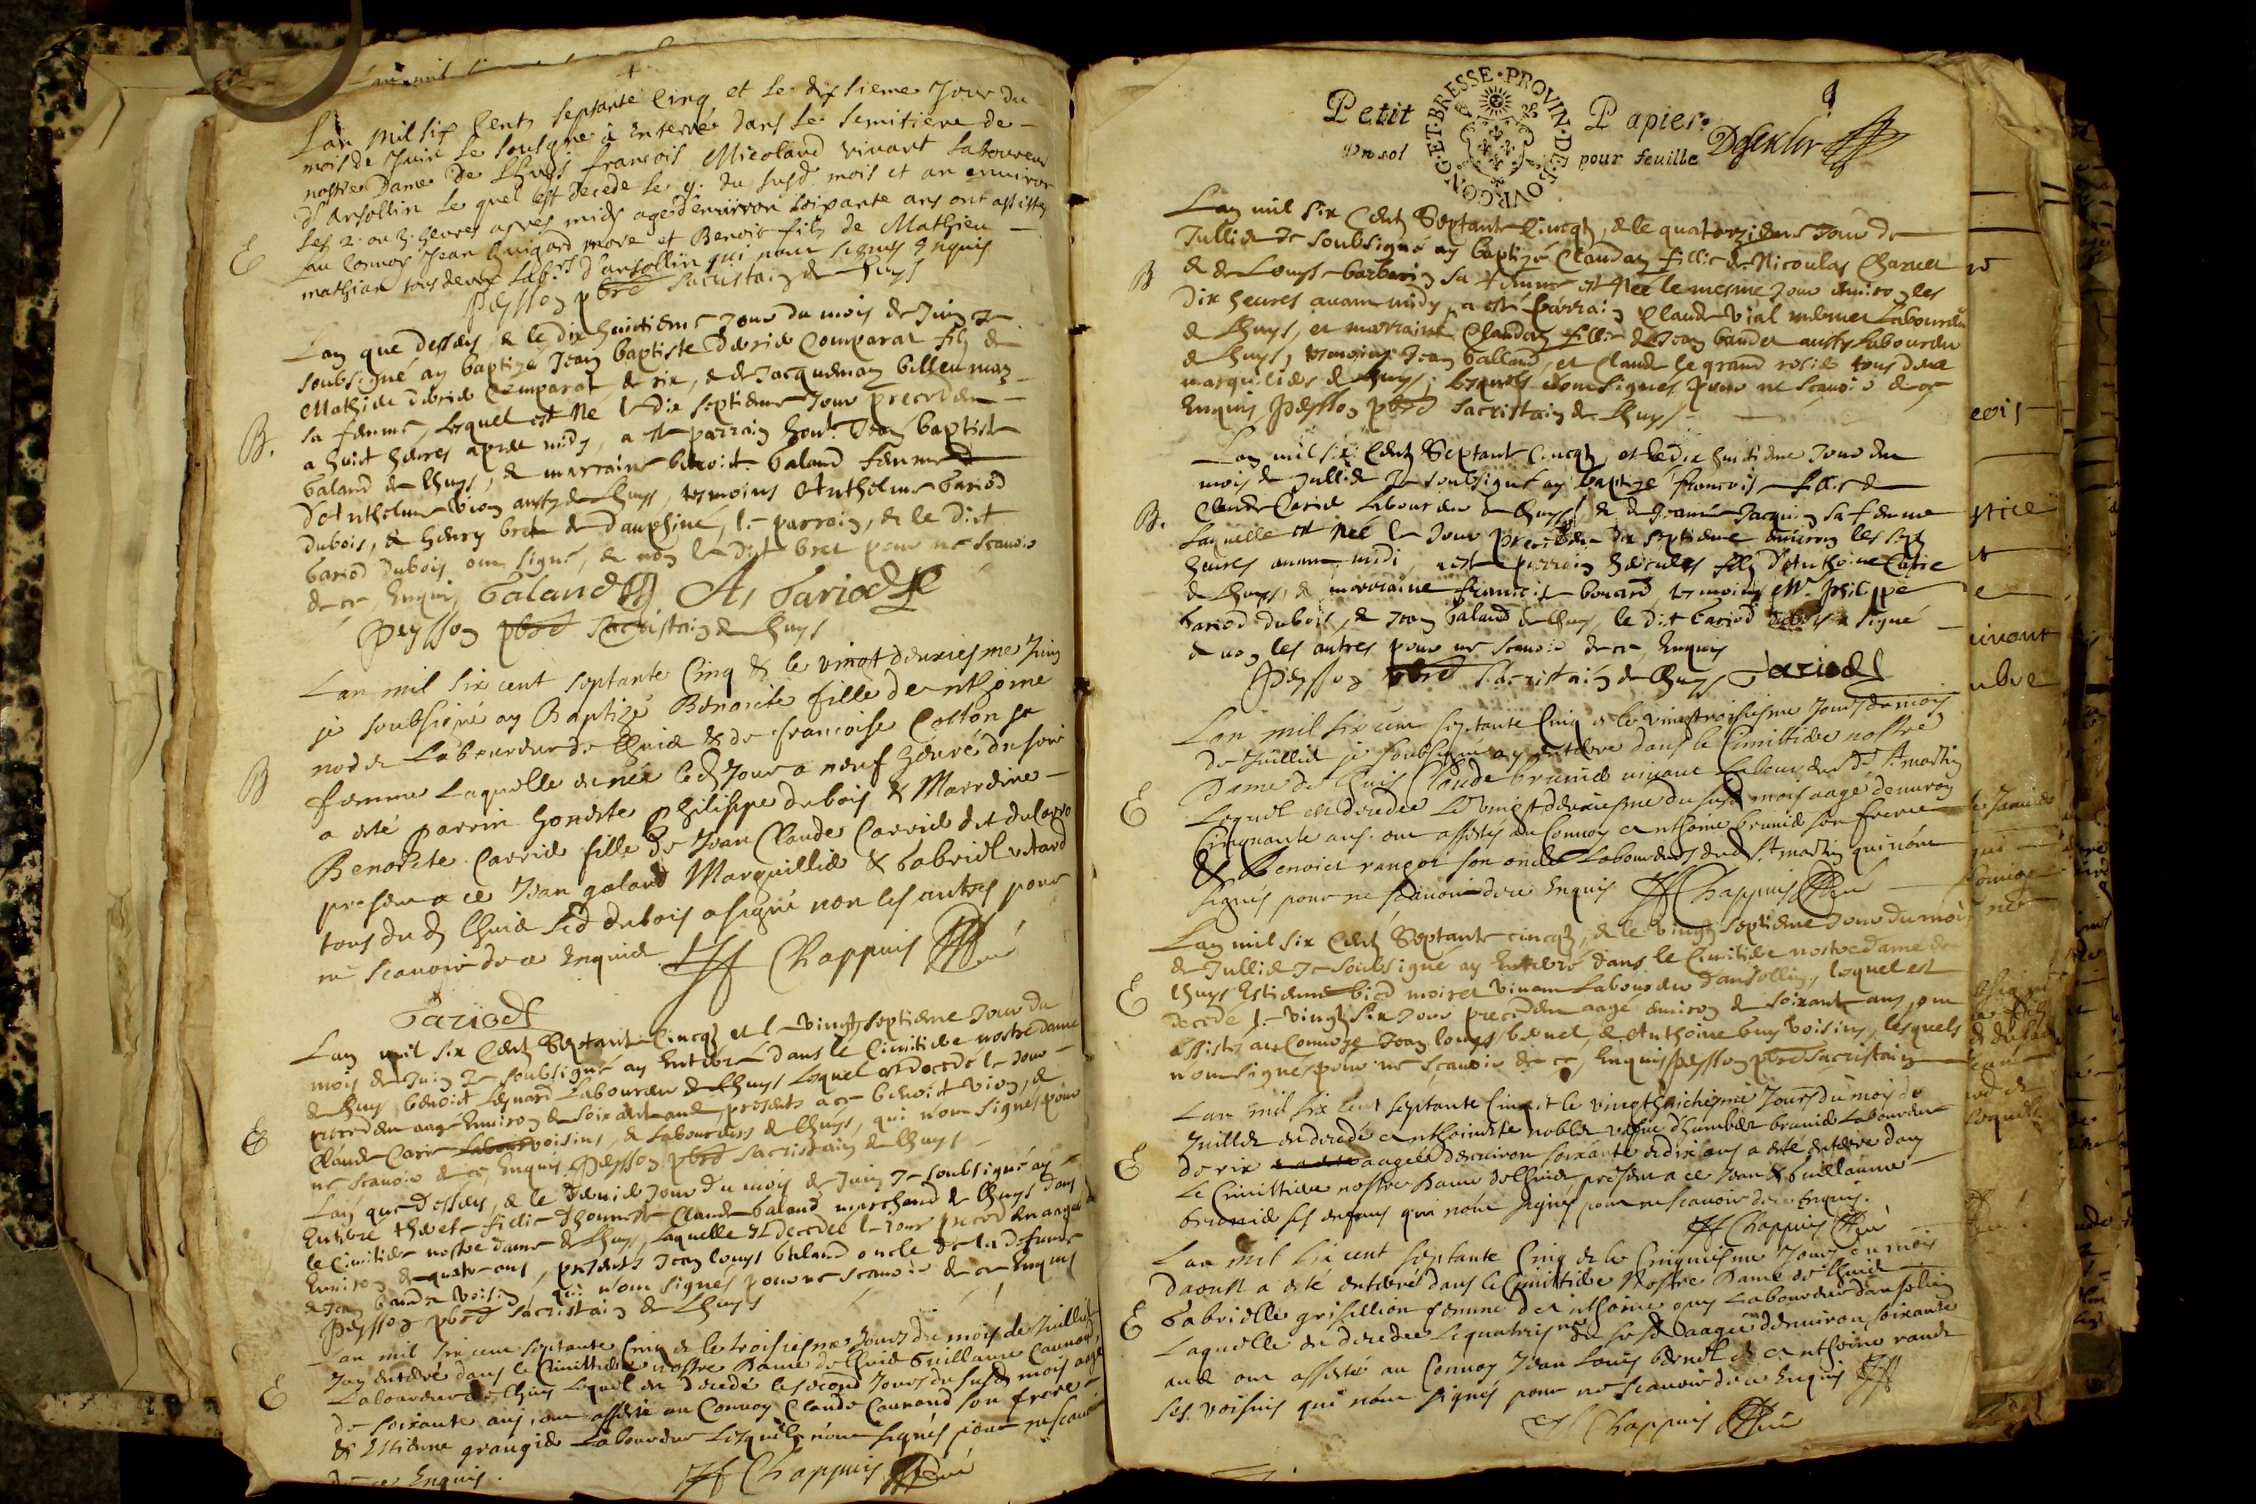 Lan mil six Cents septante Cinq et le dixsieme Jour du
mois de Juin Le soubsigné à Enterré dans le Semitiere de
nostre Dame de Lhuys francois Micoland vivant Laboureur
d'Arsollin le quel est decede le 9. du susd. mois et an environ
les 2. ou 3. heures apres midy agé denviron soixante ans ont assistes
E
au Convoy Jean et Benoit fils de Mathieu
mathian tous deux Lab.rs d'arsollin qui nont signes Enquis
Peysson pbre Sacristain de Lhuys
Lan que dessus, & le dix huictieme Jour du mois de Juin Je
soubsigné ay baptizé Jean baptiste Comparat filz de
Comparat de rix, & de Jacquemaz
B.
sa femme, lequel est né le dix septieme Jour precedent
a huict heures apres midy, a esté parrain hon.e Jean baptiste
Galand de Lhuys, & marraine benoite Galand femme
d'Anthelme Vion aussy de Lhuys, tesmoins Anthelme Gariod
dubois, & henry bret de Dauphiné, le parrain, & le dict
Gariod dubois ont signé, & non le dit bret pour ne scavoir
de ce Enquis Galand A, Gariod
Peysson pbre Sacristain de Lhuys
Lan mil six cent septante Cinq & le vingt deuxiesme Juin
je soubsigné ay Baptizé Benoite fille de Anthoine
Laboureur de Lhuis & de francoise Cotton sa
B
femme Laquelle est née led Jour a neuf heure du soir
a esté parrin honeste Philippe dubois & Marreine
Benoite Carrie fille de Jean Claude Carrie
present a ce Jean galand Marguillie & Gabriel
tous du d Lhuis led dubois a signé non les autres pour
ne scavoir de ce Enquis Chappuis
Gariod
Lan mil six Cent Septante Cincq et le vingt septieme Jour du
mois de Juin Je soubsigné ay Enterré dans le Cimitiere nostre dame
de Lhuys benoit Laboureur de Lhuys lequel est decede le Jour
E
precedent aagé Environ de soixante ans presents a ce benoit Vion, &
Claude Carri voisins, & Laboureurs de Lhuys, qui n'ont signés pour
ne scavoir de ce Enquis Peysson pbre Sacristain de Lhuys
Lan que dessus, & le dernier Jour du mois de Juin Je soubsigné ay
Enterré fillie dhonneste Claude Galand marchand de Lhuys dans
le Cimitiere nostre dame de Lhuys, laquelle est decedee le Jour precedent aagée
Environ de quatre ans, presents Jean louys Galand oncle de la defunte
& Jean voisin qui n'ont signés pour ne scavoir de ce Enquis
Peysson pbre Sacristain de Lhuys
Lan mil six cent septante Cinq & le troisiesme Jour du mois de Juillet
Jay enterré dans le Cimittiere nostre Dame de Lhuis Guillaume
E
Laboureur de Lhuis lequel est decedé le second Jour du susd mois aagé
de soixante ans, ont assisté au Convoy Claude son frere
& Estienne grangie Laboureur lesquels nont signés pour ne scavoir
de ce Enquis.
Chappuis
Petit Papier
Un sol pour feuille
BOVRGONG·ET·BRESSE·PROVIN·DE
Lan mil six Cent Septante Cincq, & le quatorzieme Jour de
Jullie Je soubsigné ay baptizé Claudaz fillie de Nicoulas Charvet
B
& de Louyse barbarin sa femme est née le mesme Jour environ les
dix heures avant midy, a esté parrain Claude Vial Laboureur
de Lhuys, et marraine Claudaz fillie de Jean baudet aussy Laboureur
de Lhuys, tesmoins Jean Galland, et Claude le grand tous deux
marguilies de Lhuys, lesquels n'ont signes pour ne scavoir de ce
Enquis Peysson pbre Sacristain de Lhuys
Lan mil six Cent Septante Cincq, et le dix huictieme Jour du
mois de Jullie Je soubsigné ay baptizé francois fillie de
B.
Claude Carrie Laboureur de Lhuys, & de Jeanne Jacquin sa femme
Laquelle est née le Jour precedent dix septieme environ les sept
heures avant midi, a esté parrain hercules filz d'Anthoine Carrie
de Lhuys, & marraine francoise bouard tesmoins Mr. philippe
Gariod dubois, & Jean Galand de Lhuys, le dit Gariod dubois a signé
& non les autres pour ne scavoir de ce Enquis
Peysson pbre Sacristain de Lhuys Gariod
Lan mil six cent septante Cinq & le vingttroisiesme Jour du mois
de Juillie je soubsigné ay enterre dans le Cimittiere nostre
Dame de Lhuis Claude brunie vivant Laboureur de St martin
E
lequel est decedee le vingt deuxiesme du susd mois aagé denviron
Cinquante ans. ont assistés au Convoy Anthoine brunie son frere
& Benoict rangot son oncle Laboureurs dud St martin qui nont
signés pour ne scavoir de ce Enquis Chappuis
Lan mil six Cent Septante cincq, & le vingt Septieme Jour du mois
de Jullie Je soubsigné ay Enterré dans le Cimitiere nostre dame de
E
Lhuys Estienne moiret vivant Laboureur d'arsollin, lequel est
decede le vingt six Jour precedent aagé environ de soixante ans, ont
assistes au Convoye Jean louys benet, & Anthoine Guy voisins, lesquels
n'ont signés pour ne scavoir de ce, Enquis Peysson pbre Sacristain
Lan mil six cent septante Cinq et le vingthuictiesme Jour du mois de
Juillet est decedé Anthoinete noble vefve dhumber brunie Laboureur
E
de rix aagee denviron soixante & dix ans a esté enterre dans
le Cimittiere nostre Dame de Lhuis present a ce Jean & Guillaume
brunie ses enfans qui nont signes pour ne scavoir de ce Enquis.
Chappuis
Lan mil six cent septante Cinq & le Cinquiesme Jour du mois
daoust a esté enterré dans le Cimittiere Nostre Dame de Lhuis
E
Gabrielle grisillion femme de Anthoine guy Laboureur darsolin
laquelle est decedee le quatriesme du susd aagee denviron soixante
ans ont assisté au Convoy Jean Louis benet & Anthoine
ses voisins qui nont signés pour ne scavoir de ce Enquis
Chappuis